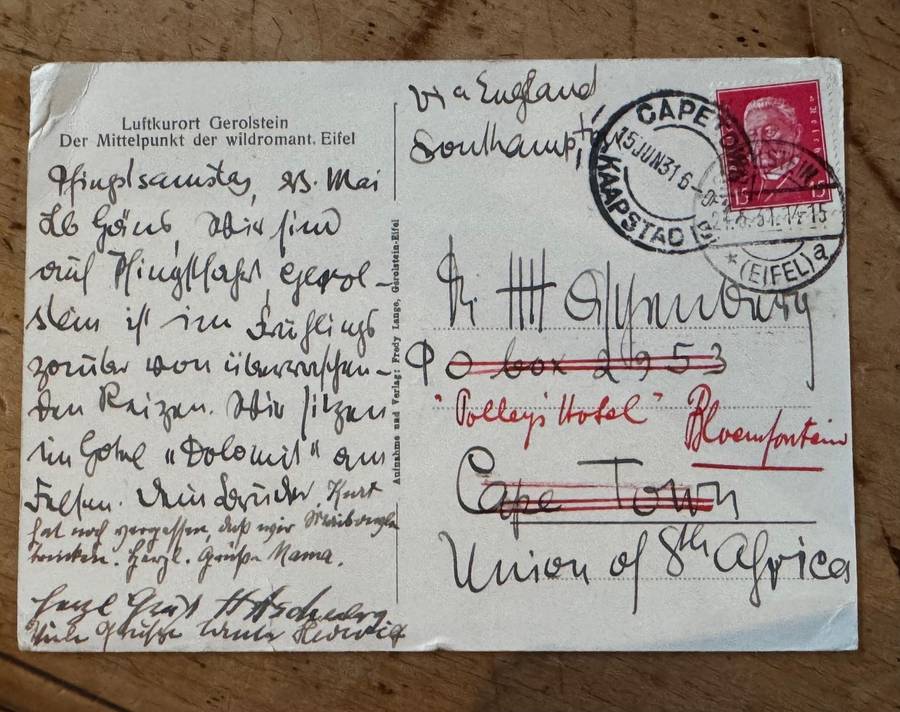 Luftkurort Gerolstein
Der Mittelpunkt der wildromant. Eifel
Pfingstsamstag, 23. Mai
Lb Hans, Wir sind
auf Pfingstfahrt, Gerol-
stein ist im Frühlings
von überraschen-
den Reizen. Wir sitzen
im Hotel „Dolomit" am
Felsen. Dein Bruder Kurt
hat noch vergessen, daß wir
trinken. Herzl. Grüße Mama.
Herzl Gruß
Viele Grüße Hedwig
Aufnahme und Verlag: Fredy Lange, Gerolstein-Eifel
via England
Southampt
CAPE TOWN
15 JUN 31 6
KAAPSTAD
15 15
31. 14-15
(EIFEL) a
P O box 2953
"Polley's Hotel"
Bloemfontein
Cape Town
Union of Sth Africa